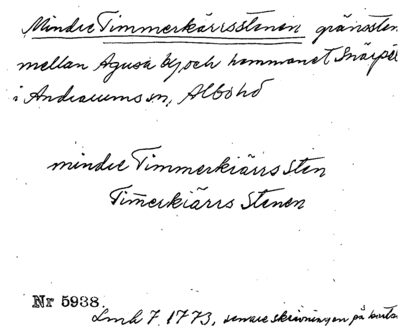 Mindre Timmerkärrsstenen gränssten
mellan Agusa by och hemmanet Snärpe
i Andrarums sn, Albo hd
mindre Timmerkiärrs Sten
Tim̄erkiärrs Stenen
Nr 5938.
Lmh 7 1773, senare skrivningen på karta